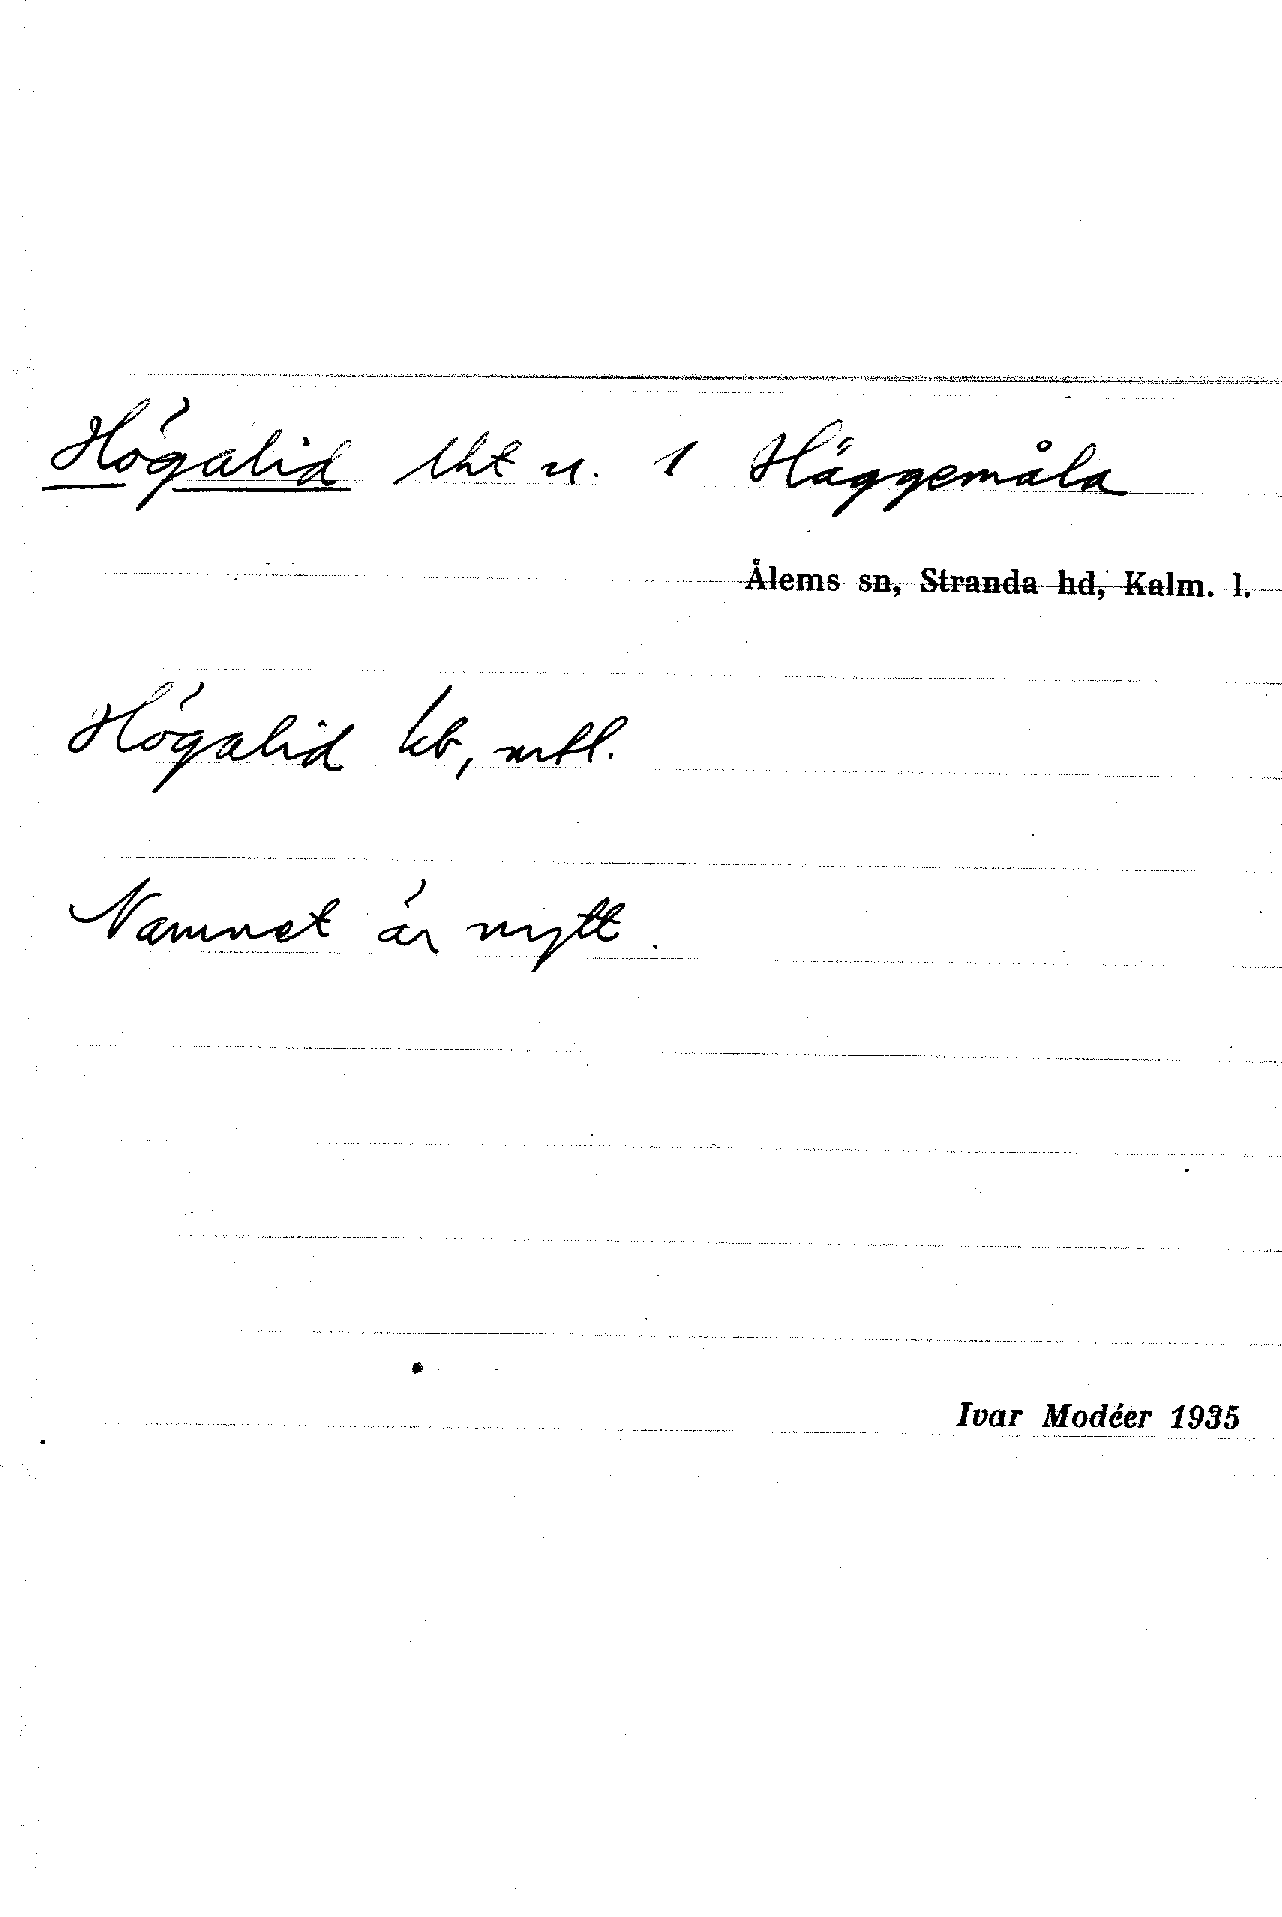 Högalid lht u. 1 Häggemåla
Ålems sn, Stranda hd, Kalm. l.
Högalid kb, mtl.
Namnet är nytt.
Ivar Modéer 1935